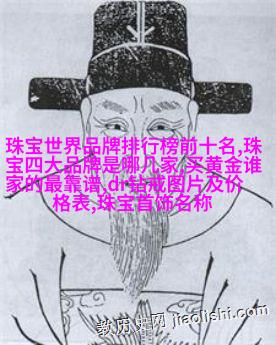 珠宝世界品牌排行榜前十名,珠
宝四大品牌是哪几家,买黄金谁
家的最靠谱,dr钻戒图片及价
格表,珠宝首饰名称
教历史网 jiaolishi.com